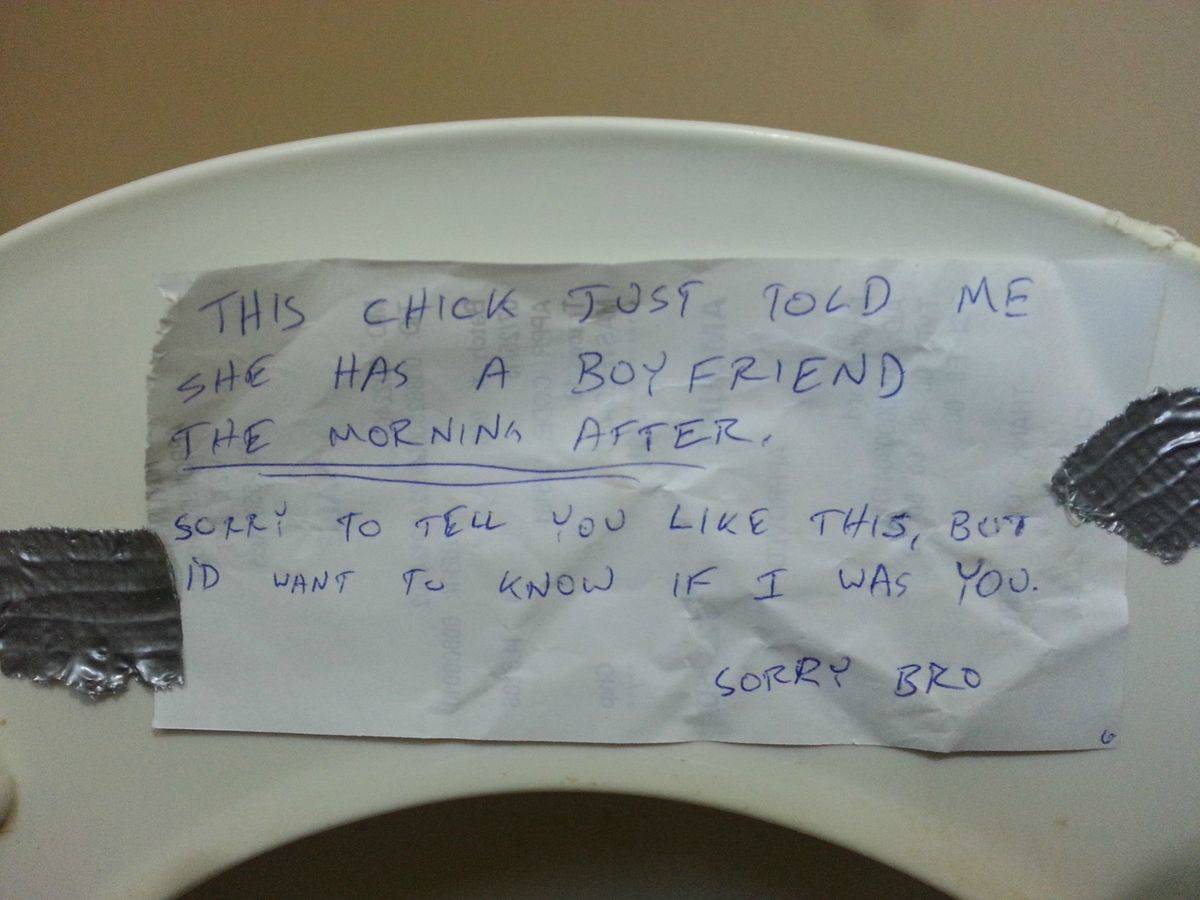 THIS CHICK JUST TOLD ME
SHE HAS A BOYFRIEND
THE MORNING AFTER.
SORRY TO TELL YOU LIKE THIS, BUT
I'D WANT TO KNOW IF I WAS YOU.
SORRY BRO
6